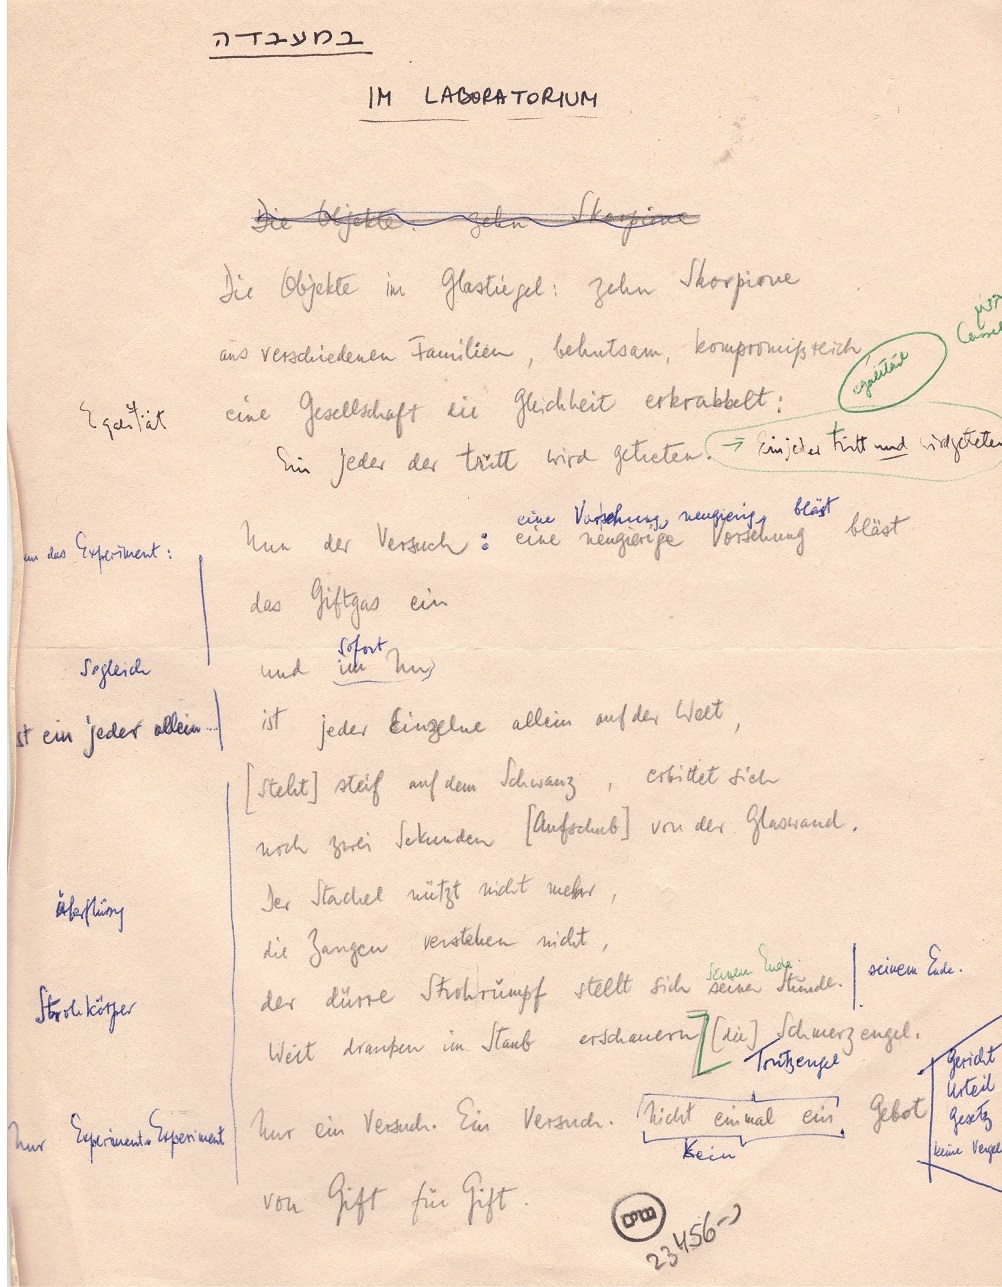 במעבדה
IM LABORATORIUM
Die Objekte: zehn Skorpione
Die Objekte im Glastiegel: zehn Skorpione
aus verschiedenen Familien, behutsam, kompromißreich
egalitär
Egalität
eine Gesellschaft die Gleichheit erkrabbelt:
Ein jeder der tritt wird getreten.
→ Ein jeder tritt und wird getreten
eine Vorsehung, neugierig, bläst
Nun der Versuch: eine neugierige Vorsehung bläst
nun das Experiment:
das Giftgas ein
sofort
sogleich
und im Nu
ist ein jeder allein...
ist jeder Einzelne allein auf der Welt,
[steht] steif auf dem Schwanz, erbittet sich
noch zwei Sekunden [Aufschub] von der Glaswand.
Der Stachel nützt nicht mehr,
überflüssig
die Zangen verstehen nicht,
seinem Ende.
seinem Ende.
der dürre Strohrumpf stellt sich seiner Stunde.
Strohkörper
Weit draußen im Staub erschauern [die] Schmerzengel.
Trutzengel
Gericht
Urteil
Gesetz
keine
Nur ein Versuch. Ein Versuch. Nicht einmal ein Gebot
Nur Experiment. Experiment
Kein
von Gift für Gift.
23456-